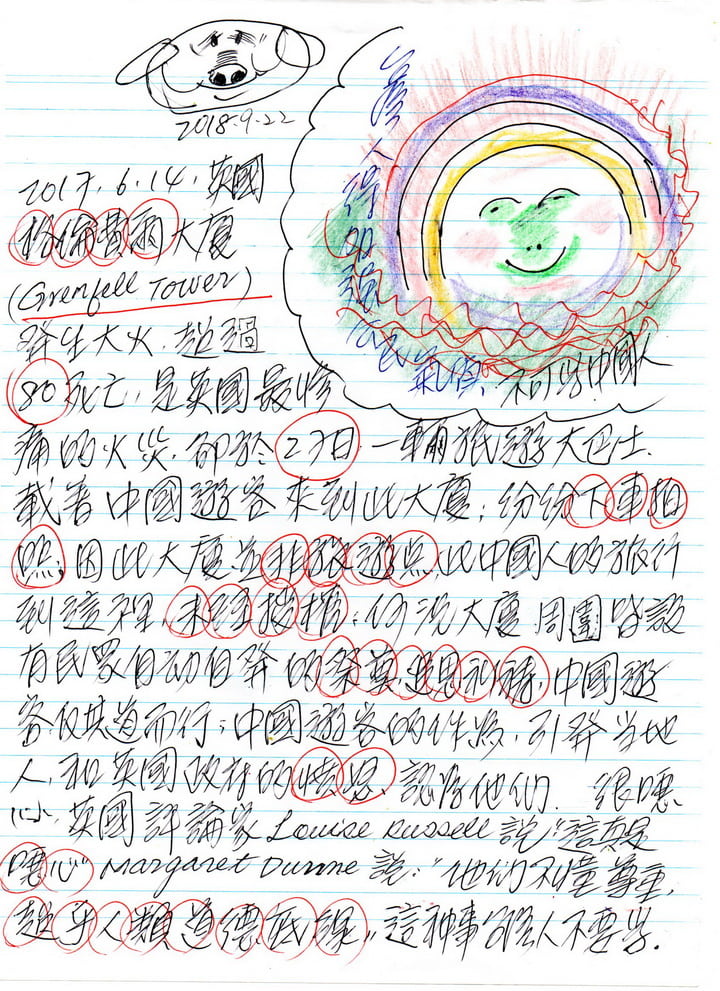 2018.9.22
台灣人得加強
公民氣質、不可學中國人
2017.6.14.英國
格倫費爾大廈
(Grenfell Tower)
發生大火.超過
80死亡,是英國最慘
痛的火災.卻於27日一輛旅遊大巴士.
載著中國遊客來到此大廈;紛紛下車拍
照,因此大廈並非旅遊点,此中國人的旅行
到這裡、未經授權;何況大廈周圍皆設
有民眾自動自發的祭奠追思祈禱,中國遊
客反其道而行;中國遊客的作為,引發當地
人,和英國政府的憤怒、認為他們.很噁
心,英國評論家Louise Russell說"這真是
噁心"Margaret Dunne說:"他們不懂尊重,
超乎人類道德底線"這種事台灣人不要學.